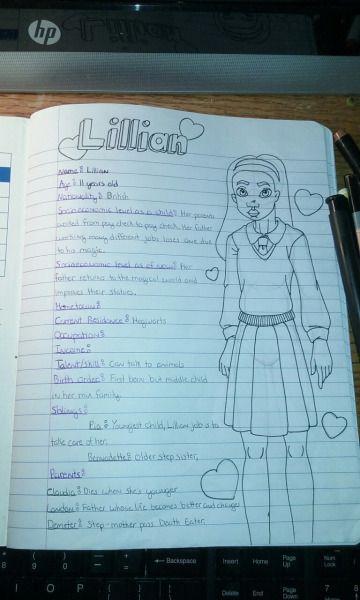 hp
Lillian
Name: Lillian
Age: 11 years old
Nationality: British
Socioeconomic level as a child: Her parents
worked from pay check to pay check. Her father
working many different jobs loses some due
to his magic.
Socioeconomic level as of now: Her
father returns to the magical world and
improves their status.
Hometown:
Current Residence: Hogwarts
Occupation:
Income:
Talent/Skill: Can talk to animals
Birth order: First born but middle child
in her own family.
Siblings:
Pia: Youngest child, Lillian job is to
take care of her.
Bernadette: Older step sister,
Parents:
Claudia: Dies when she's younger
Father whose life becomes better and changes
Demeter: Step-mother pass Death Eater.
9 0 - + =
Backspace
Insert Home Page Up Num Lock
I O P
Delete End Page Down 7